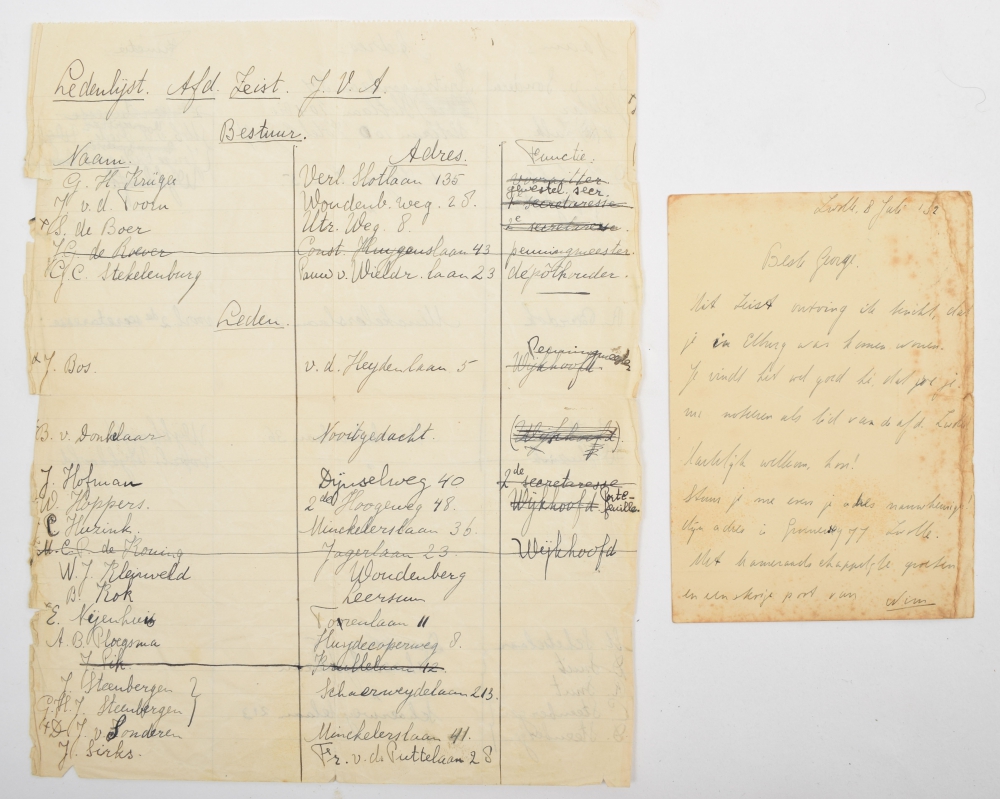 Ledenlijst. Afd. Zeist. J. V. A.
Bestuur.
Naam. Adres. Functie.
G. H. Krüger Verl. Slotlaan 135 voorzitter gewestel. secr.
H. v. d. Woudenb. weg. 28. 1e secretaresse
S. de Boer Utr. Weg. 8. 2e secretaresse
J. G. de Roever Const. Huygenslaan 43 penningmeester.
G. C. Stekelenburg Pauw v. Wieldr. laan 23 depôthouder.
Leden.
J. Bos. v. d. Heydenlaan 5 Wijkhoofd Penningmeester
B. v. Donkelaar Nooitgedacht. (Wijkhoofd)
J. Hofman Dijnselweg 40 2de secretaresse
W. Hoppers. 2de Hoogeweg 48. Wijkhoofd Porte-
feuille.
C Hurink. Minckelerslaan 36
M. C. J. de Koning Jagerlaan 23. Wijkhoofd
W. J. Kleinveld Woudenberg
B. Kok Leersum
E. Nijenhuis Torenlaan 11
A. B. Ploegsma Huydecoperweg 8.
J. Sik 42
J. Steenbergen Schaerweydelaan 213.
G. H. J. Steenbergen
D. J. v. Sonderen Minckelerslaan 41.
H. Sirks. Fr. v. d. Puttelaan 28
Zwolle. 8 Juli
Beste George.
Uit Zeist ontving ik bericht, dat
je in Elburg was komen wonen.
Je vindt het wel goed hè, dat we je
nu noteren als lid van de afd. Zwolle
hartelijk welkom, hoor!
Stuur je me even je adres nauwkeurig?
Mijn adres is 77 Zwolle.
Met kameraadschappelijke groeten
en een stevige poot van Wim